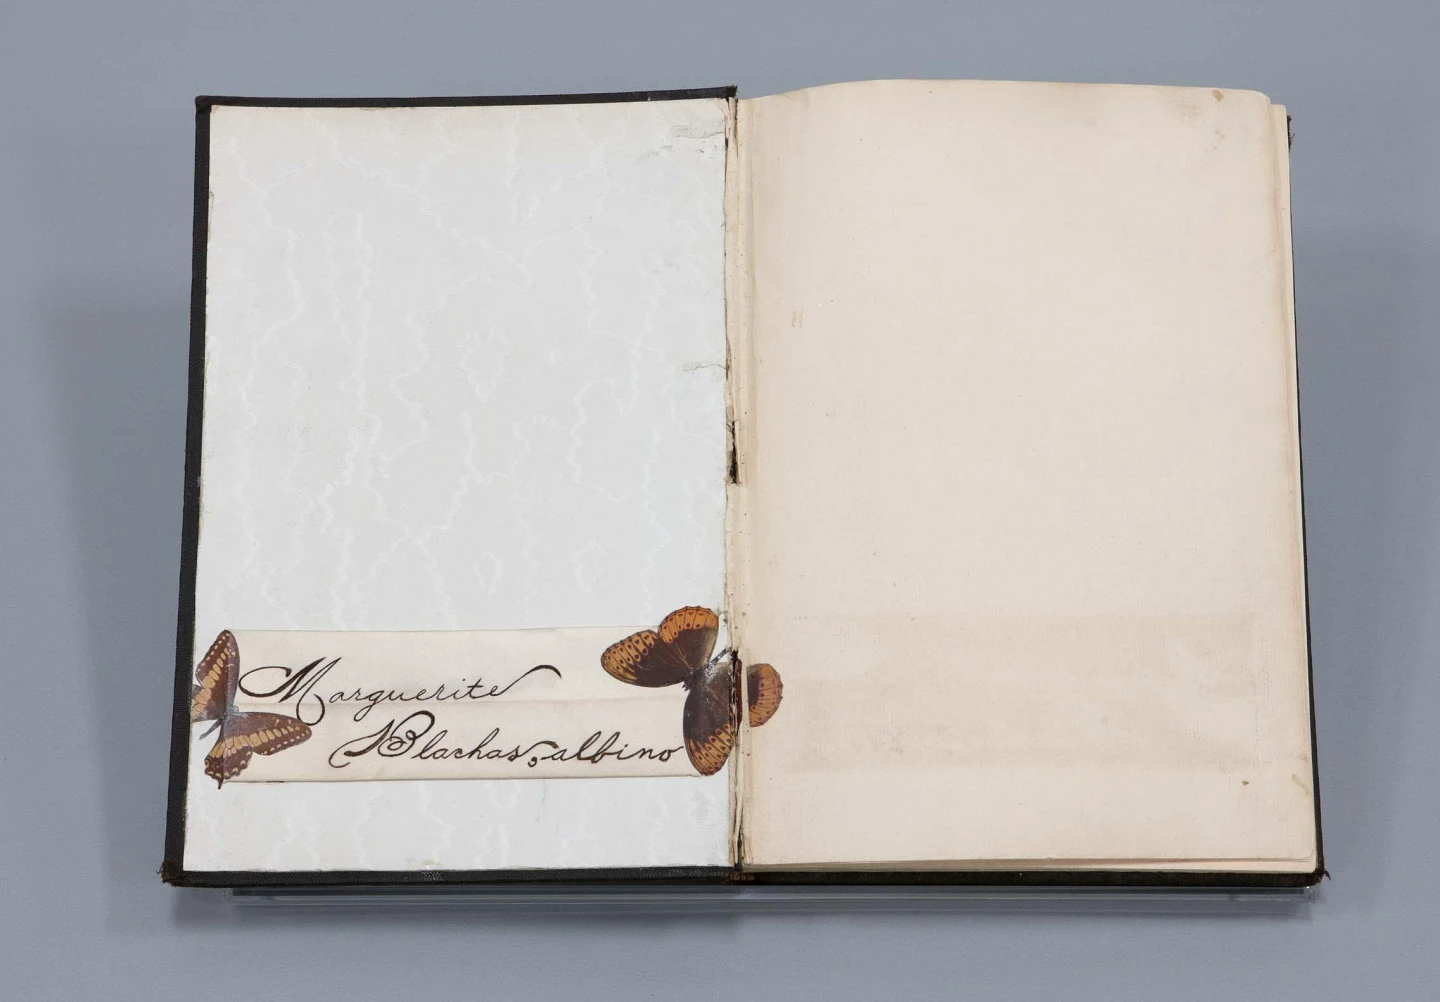 Marguerite
Blachas, albino